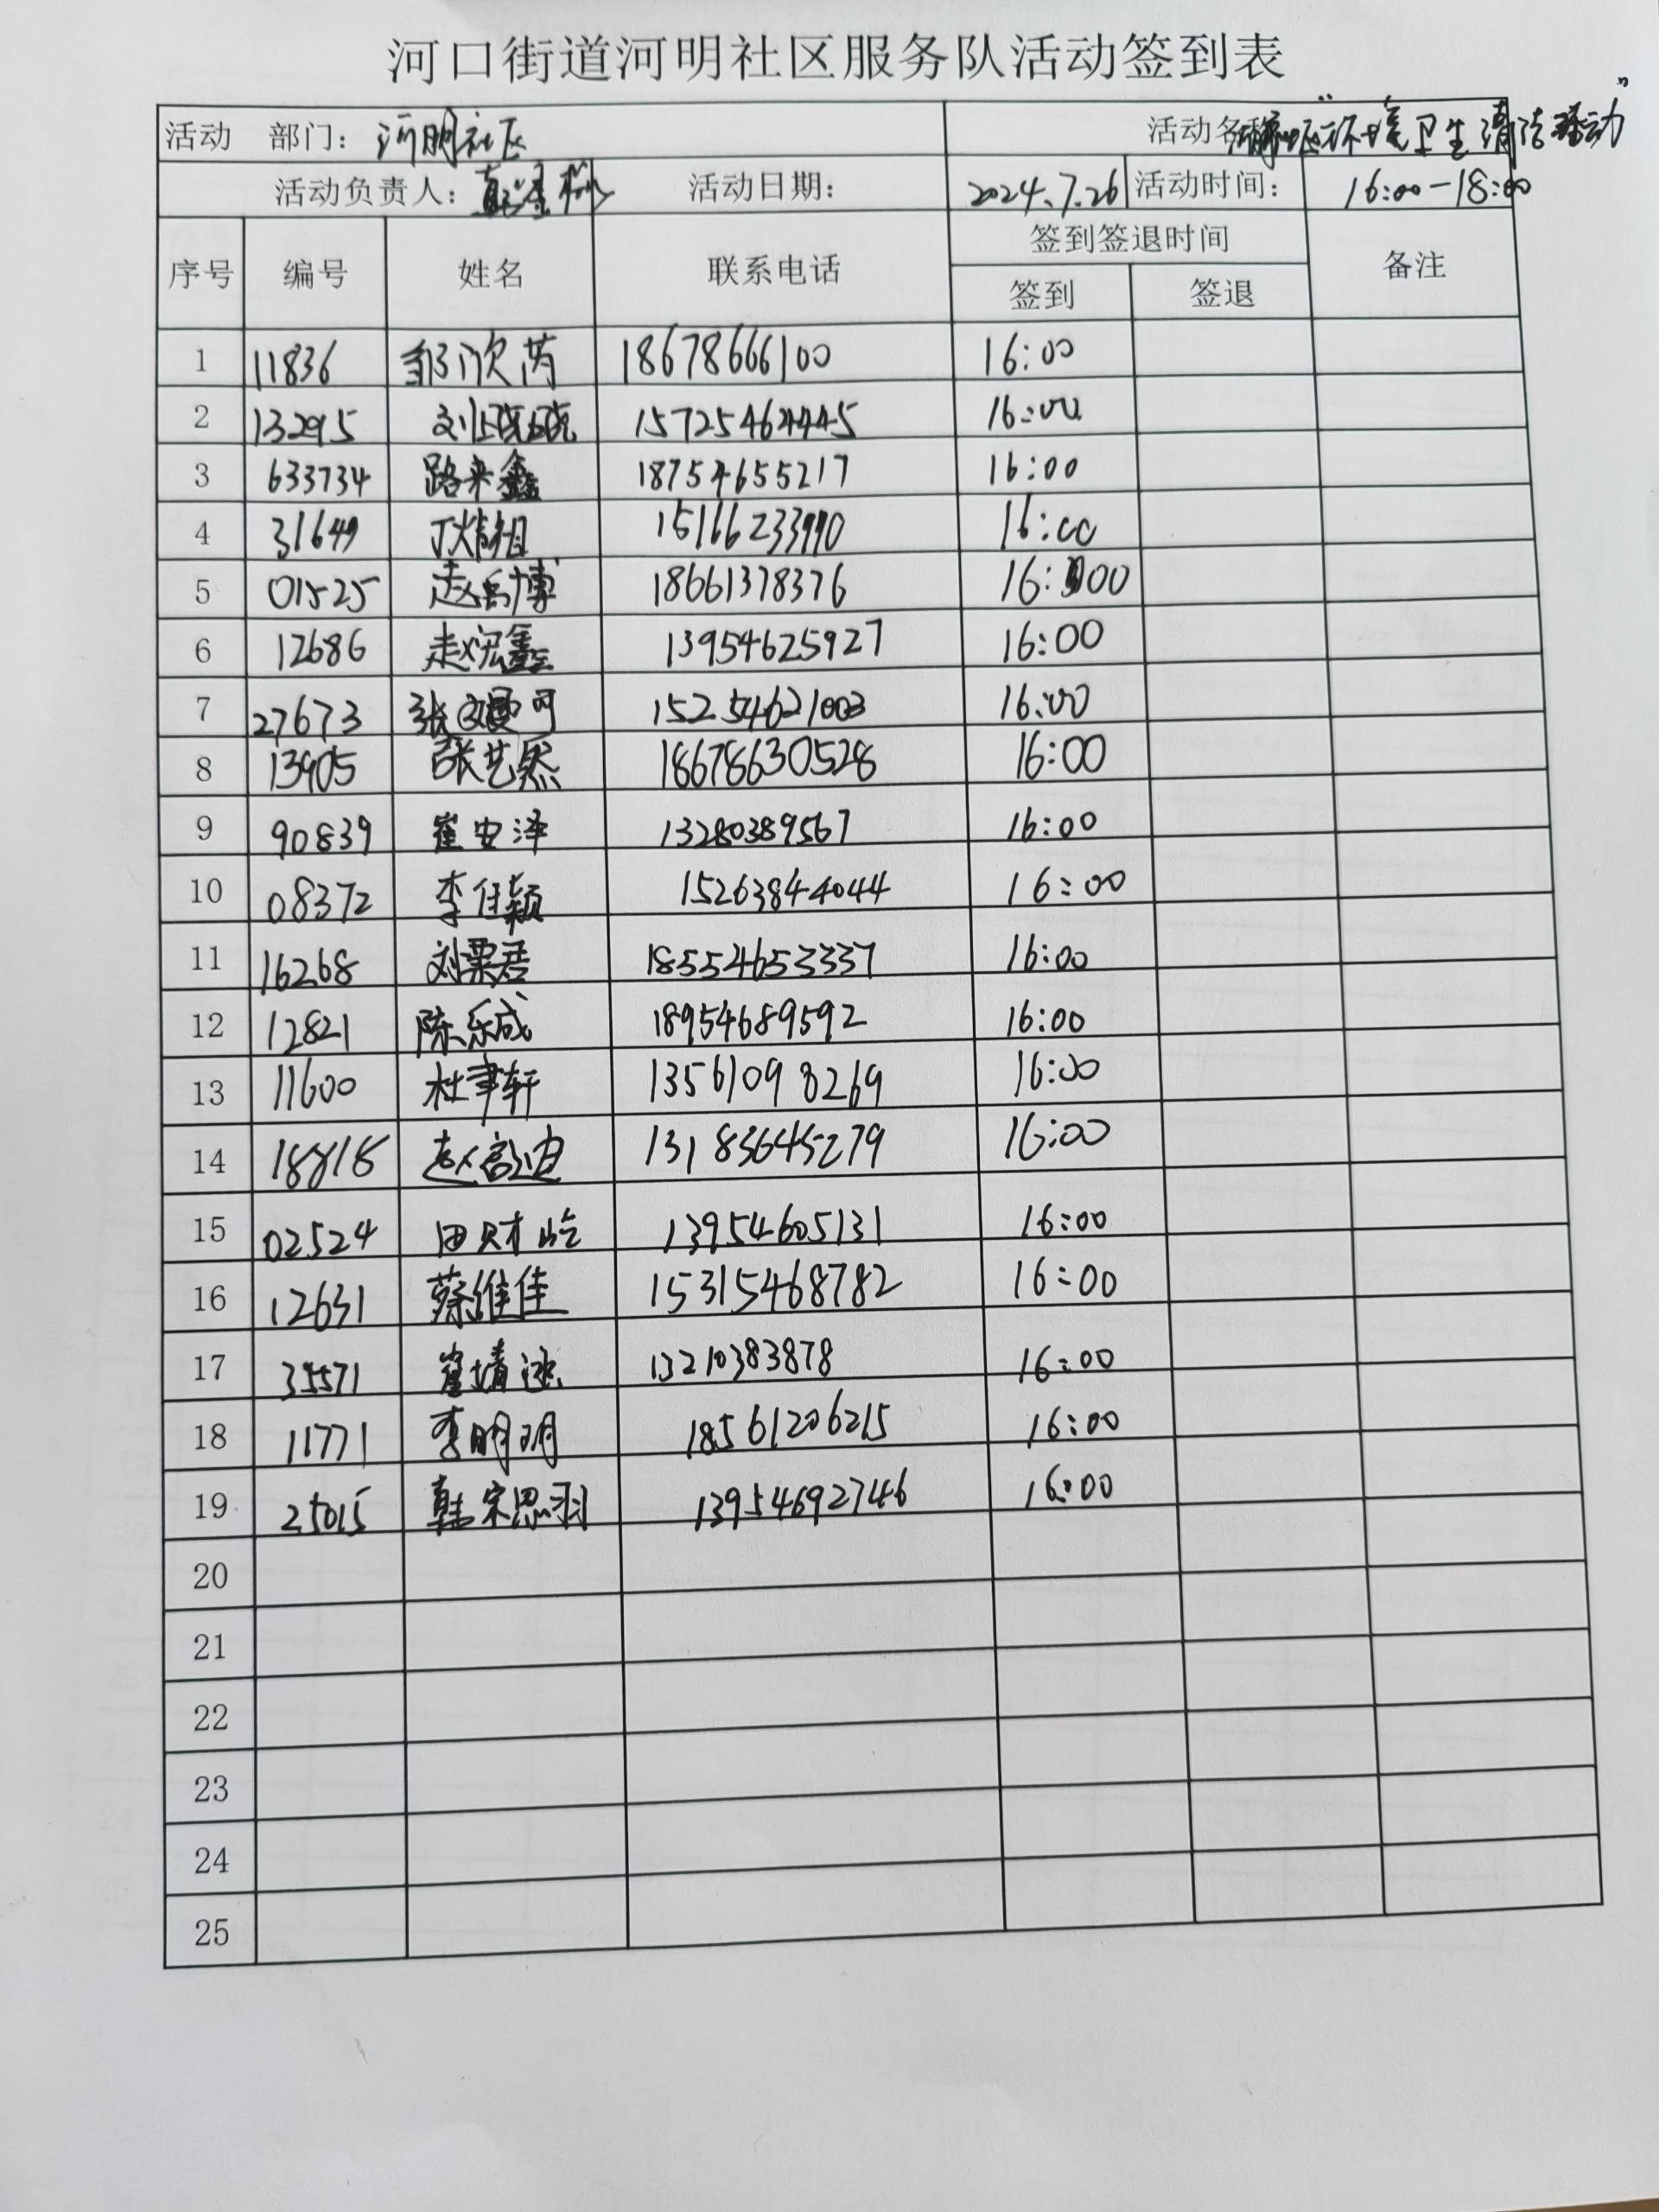 河口街道河明社区服务队活动签到表
活动 部门: 河明社区 活动名称 环境卫生清洁活动"
活动负责人: 活动日期: 2024.7.26 活动时间: 16:00-18:00
序号 编号 姓名 联系电话 签到签退时间 备注
签到 签退
1 11836 邹欣芮 18678666100 16:00
2 13295 刘皖皖 15725464445 16:00
3 633734 路来鑫 18754655217 16:00
4 31649 15166233990 16:00
5 01525 赵岳博 18661378376 16:00
6 12686 赵宏鑫 13954625927 16:00
7 27673 张嫚可 15254621003 16:00
8 13905 张艺然 18678630528 16:00
9 90839 崔安泽 13280389567 16:00
10 08372 李佳颖 15263844044 16:00
11 16268 刘栗君 18554653337 16:00
12 12821 陈乐成 18954689592 16:00
13 11600 杜聿轩 13561098269 16:00
14 赵 迪 13183645279 16:00
15 02524 田财屹 13954605131 16:00
16 12631 蔡维佳 15315468782 16:00
17 35571 崔靖 13210383878 16:00
18 11771 李明玥 18561206215 16:00
19 25015 韩宋思羽 13954692746 16:00
20
21
22
23
24
25